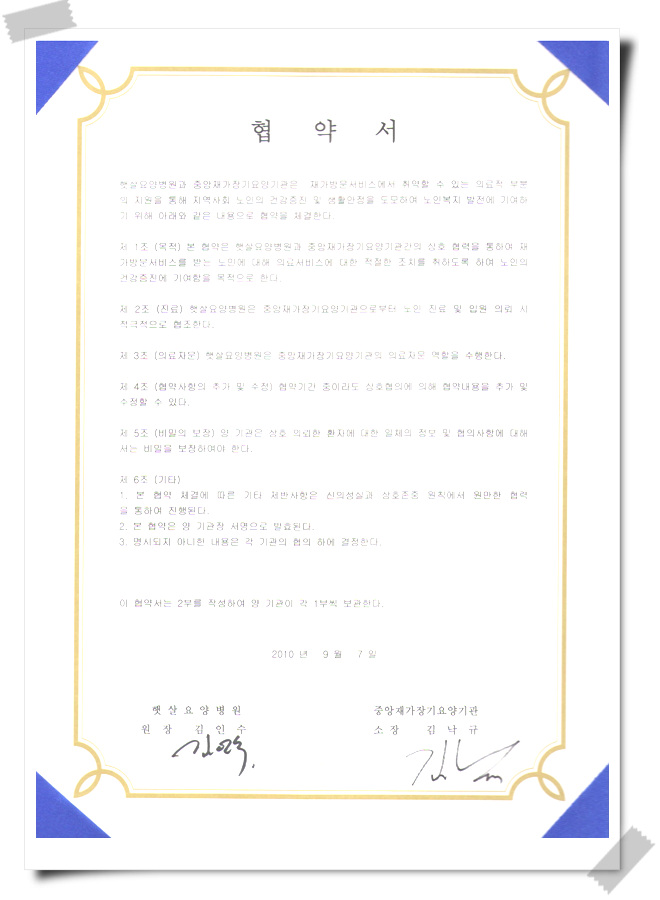 협 약 서
햇살요양병원과 중앙재가장기요양기관은 재가방문서비스에서 취약할 수 있는 의료적 부분
의 지원을 통해 지역사회 노인의 건강증진 및 생활안정을 도모하여 노인복지 발전에 기여하
기 위해 아래와 같은 내용으로 협약을 체결한다.
제 1조 (목적) 본 협약은 햇살요양병원과 중앙재가장기요양기관간의 상호 협력을 통하여 재
가방문서비스를 받는 노인에 대해 의료서비스에 대한 적절한 조치를 취하도록 하여 노인의
건강증진에 기여함을 목적으로 한다.
제 2조 (진료) 햇살요양병원은 중앙재가장기요양기관으로부터 노인 진료 및 입원 의뢰 시
적극적으로 협조한다.
제 3조 (의료자문) 햇살요양병원은 중앙재가장기요양기관의 의료자문 역할을 수행한다.
제 4조 (협약사항의 추가 및 수정) 협약기간 중이라도 상호협의에 의해 협약내용을 추가 및
수정할 수 있다.
제 5조 (비밀의 보장) 양 기관은 상호 의뢰한 환자에 대한 일체의 정보 및 협의사항에 대해
서는 비밀을 보장하여야 한다.
제 6조 (기타)
1. 본 협약 체결에 따른 기타 제반사항은 신의성실과 상호존중 원칙에서 원만한 협력
을 통하여 진행된다.
2. 본 협약은 양 기관장 서명으로 발효된다.
3. 명시되지 아니한 내용은 각 기관의 협의 하에 결정한다.
이 협약서는 2부를 작성하여 양 기관이 각 1부씩 보관한다.
2010 년 9 월 7 일
햇 살 요 양 병 원
원 장 김 인 수
중앙재가장기요양기관
소 장 김 낙 규